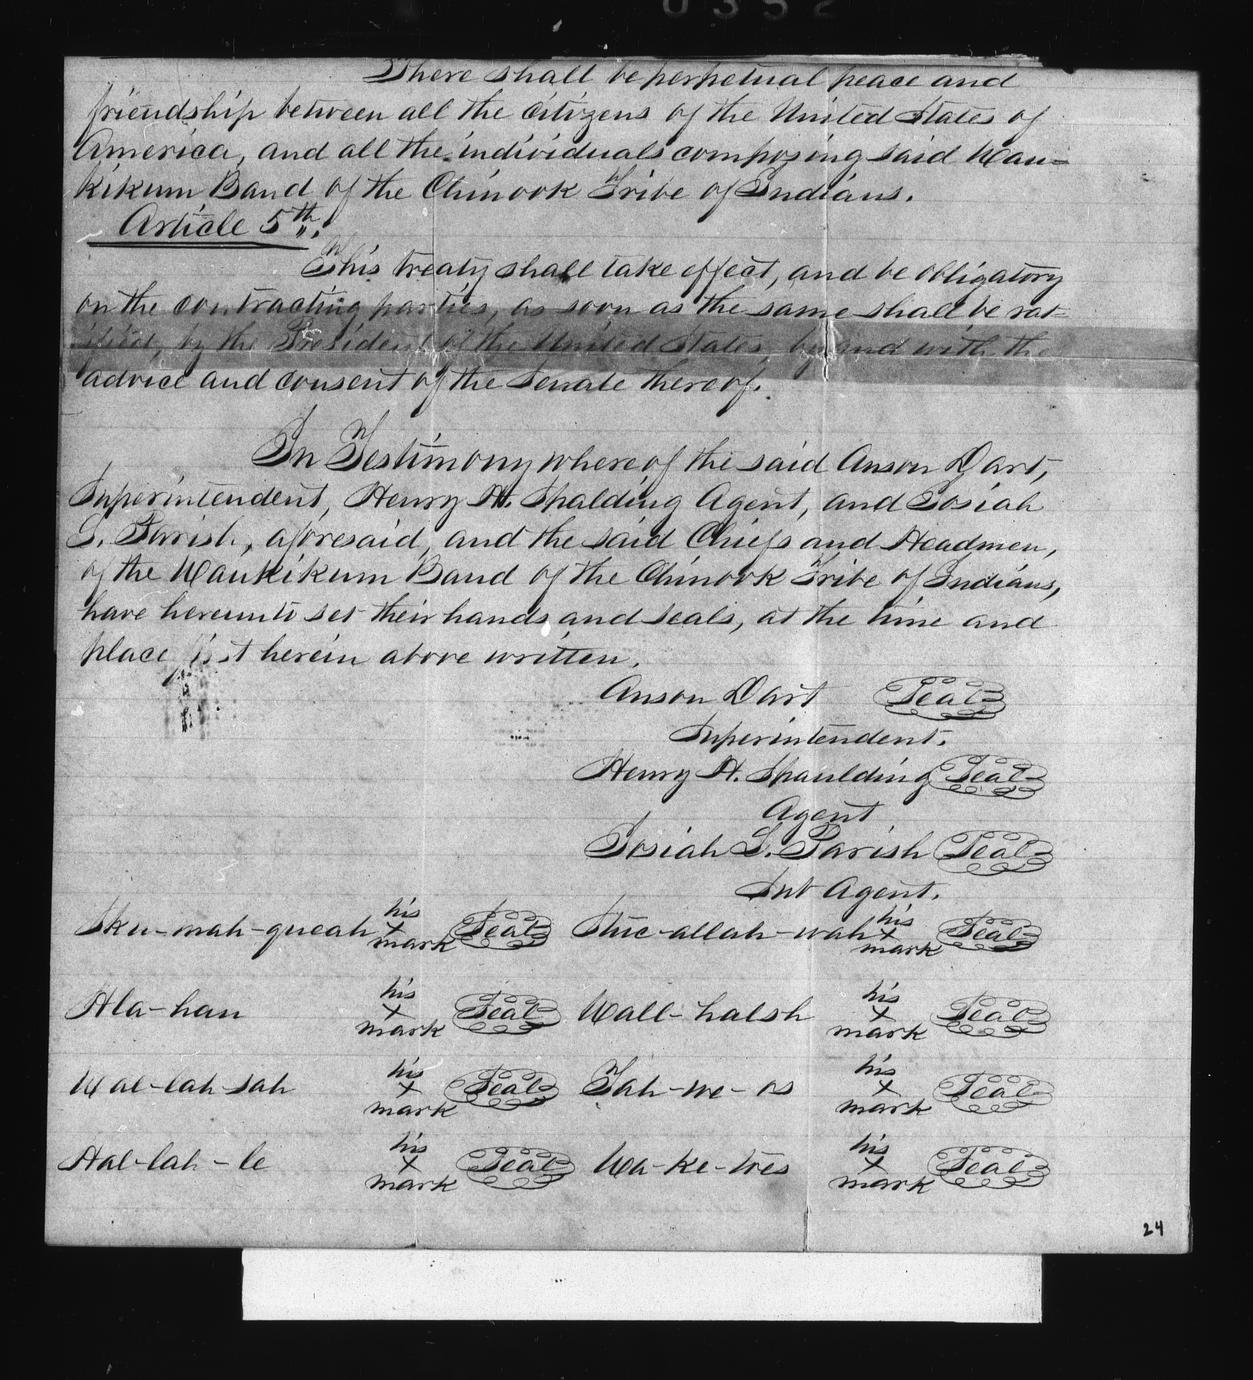 0352
There shall be perpetual peace and
friendship between all the citizens of the United States of
America, and all the individuals composing said Wau=
kikum Band of the Chinook Tribe of Indians.
Article 5th.
This treaty shall take effect, and be obligatory
on the contracting parties, as soon as the same shall be rat=
ified, by the President of the United States, by and with the
advice and consent of the Senate thereof.
In Testimony whereof the said Anson Dart,
Superintendent, Henry H. Spalding Agent, and Josiah
L. Parish, aforesaid, and the said Chiefs and Headmen,
of the Waukikum Band of the Chinook Tribe of Indians,
have hereunto set their hands and seals, at the time and
place first herein above written.
Anson Dart Seal
Superintendent.
Henry H. Spaulding Seal
Agent
Josiah L. Parish Seal
Sub Agent.
Sku-mah-queah his x mark Seal Stuc-allah-wah his x mark Seal
Hla-han his x mark Seal Wall-halsh his x mark Seal
Wal-lah-sah his x mark Seal Tah-we-os his x mark Seal
Hal-lah-le his x mark Seal Wa-ke-tres his x mark Seal
24